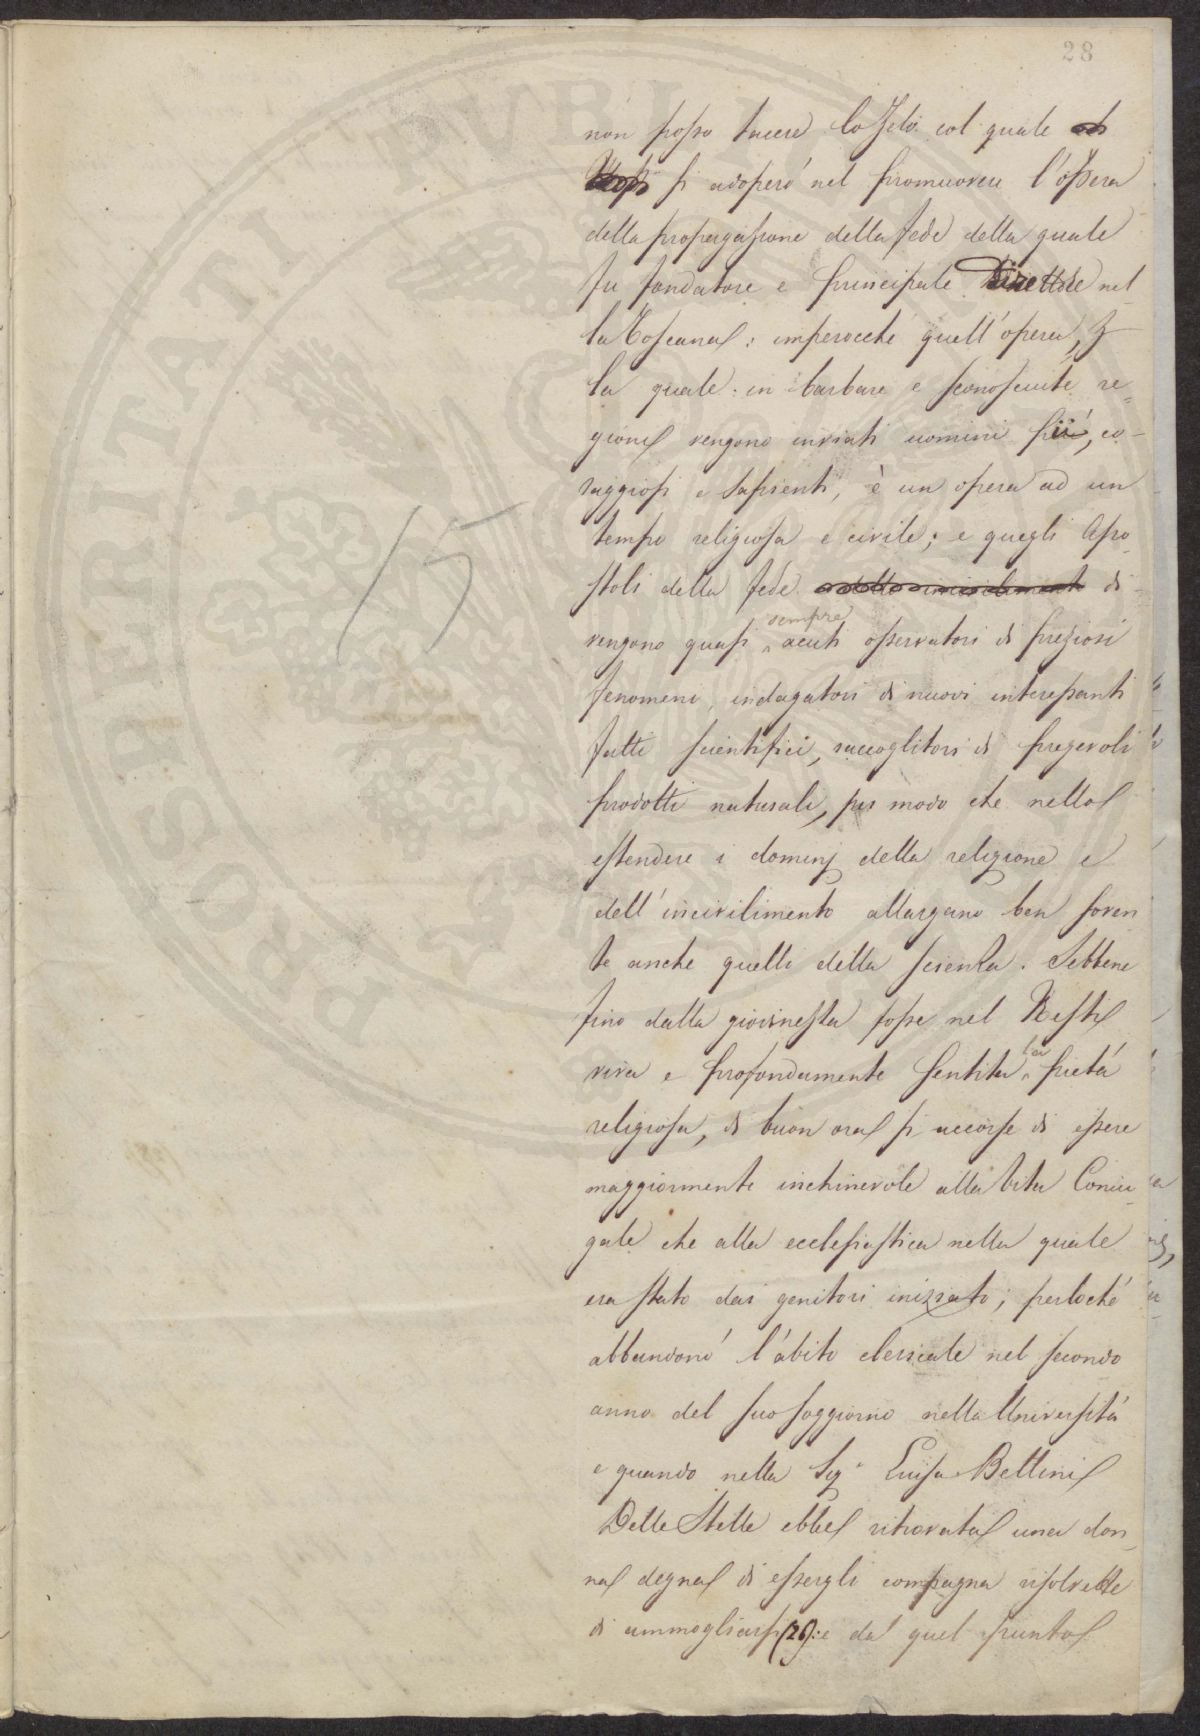 28
non posso tacere lo Zelo col quale
si adoperó nel promuovere l'ópera
della propagazione della fede della quale
fu fondatore e principale Direttore nel
la Toscana: imperocché quell'opera,
la quale in barbare e sconosciute re=
gioni vengono inviati uomini pii, co-
raggiosi e sapienti, è un opera ad un
tempo religiosa e civile; e quegli Apo
stoli della fede di
vengono quasi sempre acuti osservatori di preziosi
fenomeni, indagatori di nuovi interessanti
fatti scientifici, raccoglitori di pregevoli
prodotti naturali, per modo che nello
estendere i dominj della religione e
dell'incivilimento allargano ben soven
te anche quelli della scienza. Sebbene
fino dalla giovinezza fosse nel Nesti
viva e profondamente sentita la pietá
religiosa, di buon ora si accorse di essere
maggiormente inchinevole alla vita Coniu-
gale che alla ecclesiastica nella quale
era stato dai genitori inizzato; perloché
abbandonó l'ábito clericale nel secondo
anno del suo soggiorno nella Universitá
e quando nella Sig.ª Luisa Bettini
Delle Stelle ebbe ritrovata una don
na degna di essergli compagna risolvette
di ammogliarsi (20): e da quel punto
15